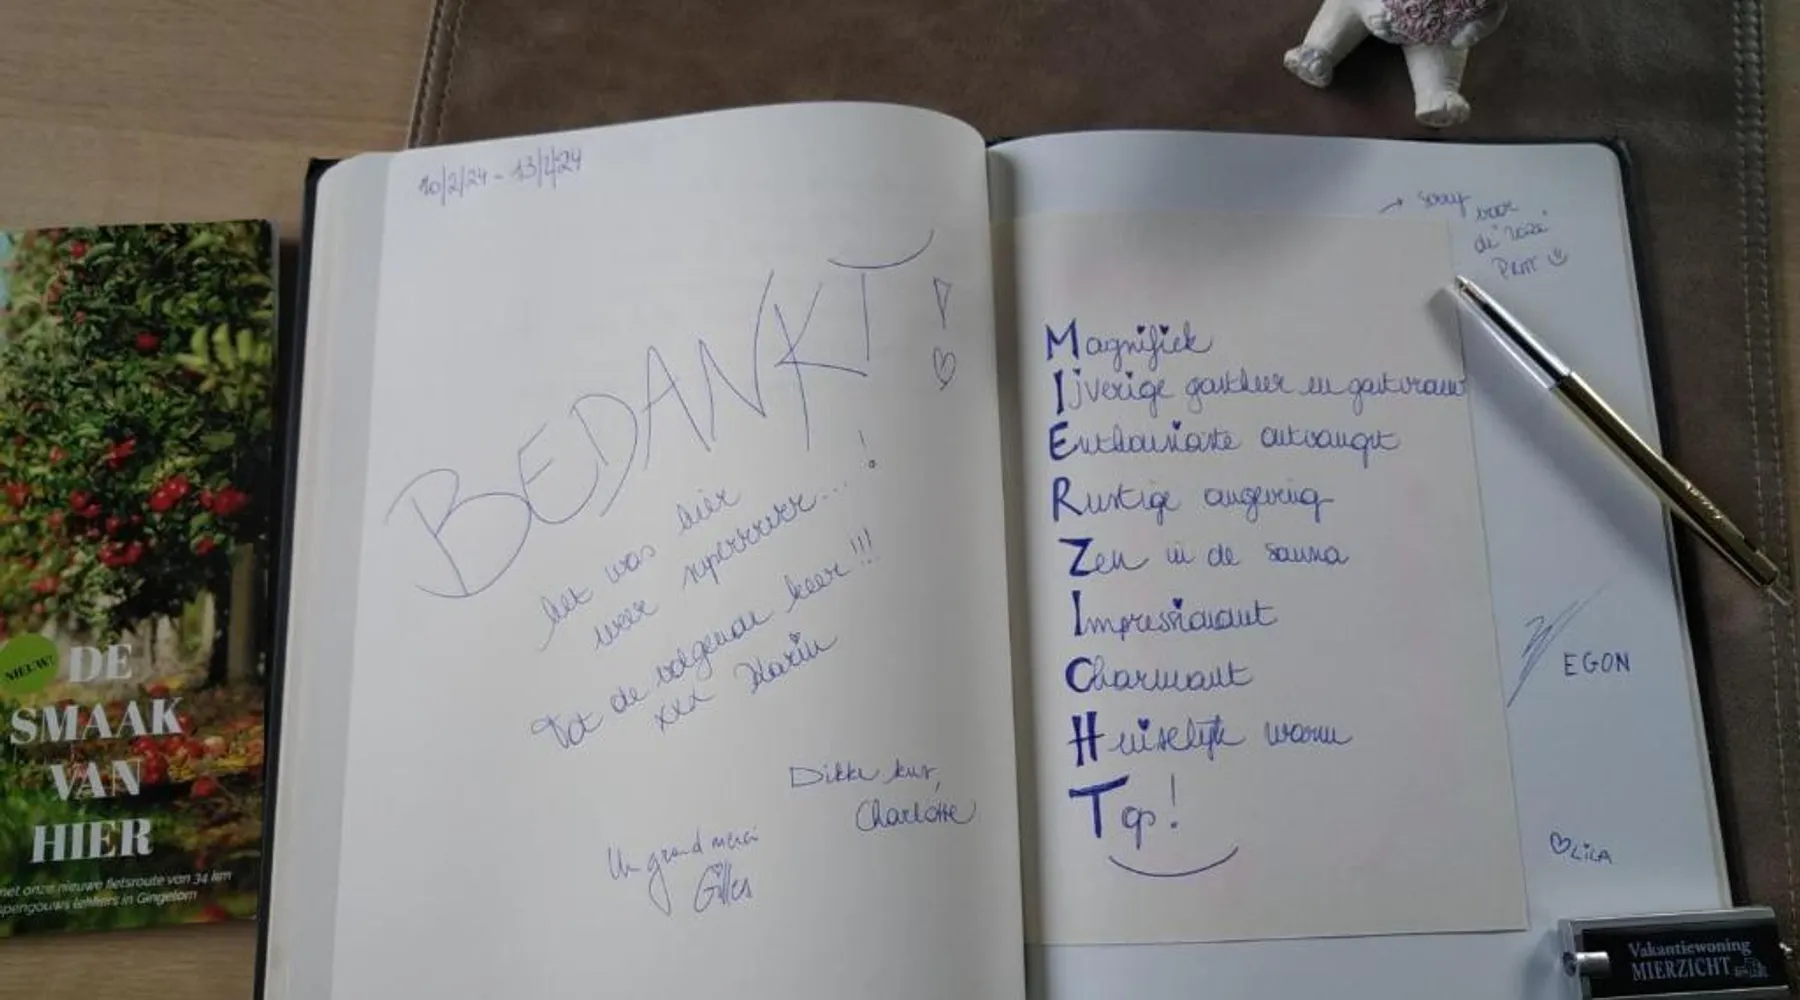 10/2/24 - 13/2/24
BEDANKT!
het was hier
weer superrrrrr...!
Tot de volgende keer!!!
xxx Karin
Dikke kus,
Charlotte
Un grand merci
Gilles
→ sorry
voor
de roze
Magnifiek
IJverige gastheer en gastvrouw
Enthousiaste ontvangst
Rustige omgeving
Zen in de sauna
Impressionant
Charmant
Huiselijk warm
Top!
EGON
♡LILA
NIEUW!
DE
SMAAK
VAN
HIER
met onze nieuwe fietsroute van 34 km
lekkers in Gingelom
Vakantiewoning
MIERZICHT